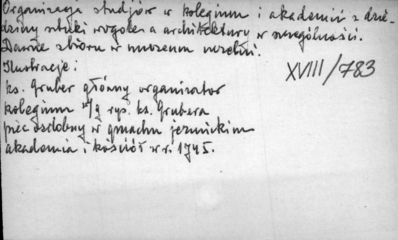 Organizacja studjów w kolegium i akademii z dzie-
dziny sztuki wogóle a architektury w szczególności.
Dawne zbiory w muzeum uczelni.
Ilustracje:
XVIII/783
ks. Gruber główny organizator
kolegium rys. ks. Grubera
piec ozdobny w gmachu jezuickim
akademia i kościół w r. 1745.